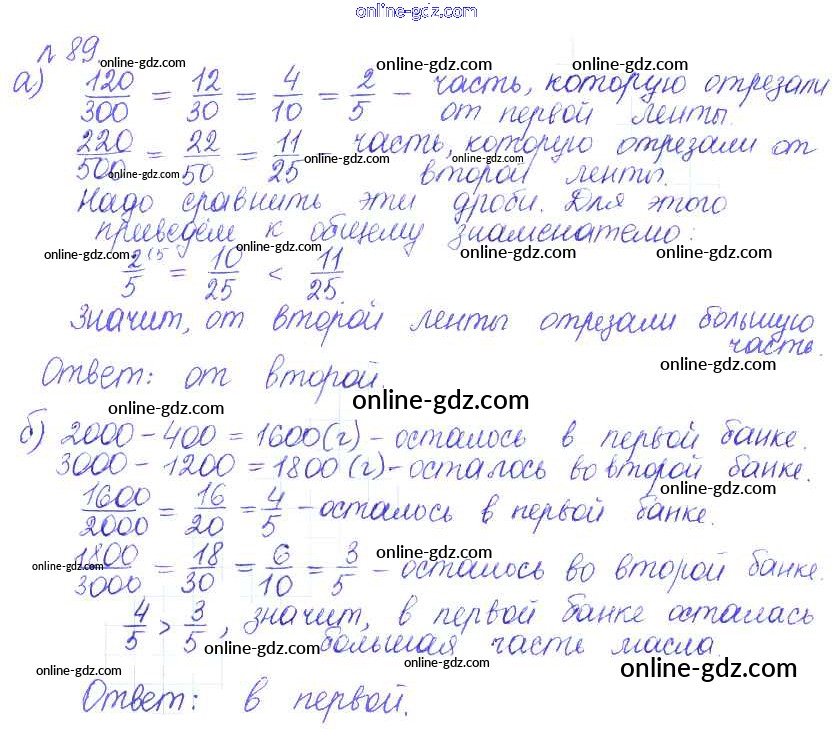 online-gdz.com
№ 89
online-gdz.com online-gdz.com online-gdz.com
а) 120/300 = 12/30 = 4/10 = 2/5 – часть, которую отрезали
от первой ленты.
online-gdz.com online-gdz.com
220/500 = 22/50 = 11/25 – часть, которую отрезали от
второй ленты.
online-gdz.com online-gdz.com
Надо сравнить эти дроби. Для этого
приведём к общему знаменателю:
online-gdz.com online-gdz.com online-gdz.com
2/5 (5 = 10/25 < 11/25
Значит, от второй ленты отрезали большую
часть.
online-gdz.com
Ответ: от второй.
online-gdz.com online-gdz.com
б) 2000 – 400 = 1600 (г) – осталось в первой банке.
3000 – 1200 = 1800 (г) – осталось во второй банке.
online-gdz.com
1600/2000 = 16/20 = 4/5 – осталось в первой банке.
online-gdz.com online-gdz.com
1800/3000 = 18/30 = 6/10 = 3/5 – осталось во второй банке.
4/5 > 3/5, значит, в первой банке осталась
большая часть масла.
online-gdz.com online-gdz.com online-gdz.com online-gdz.com
Ответ: в первой.